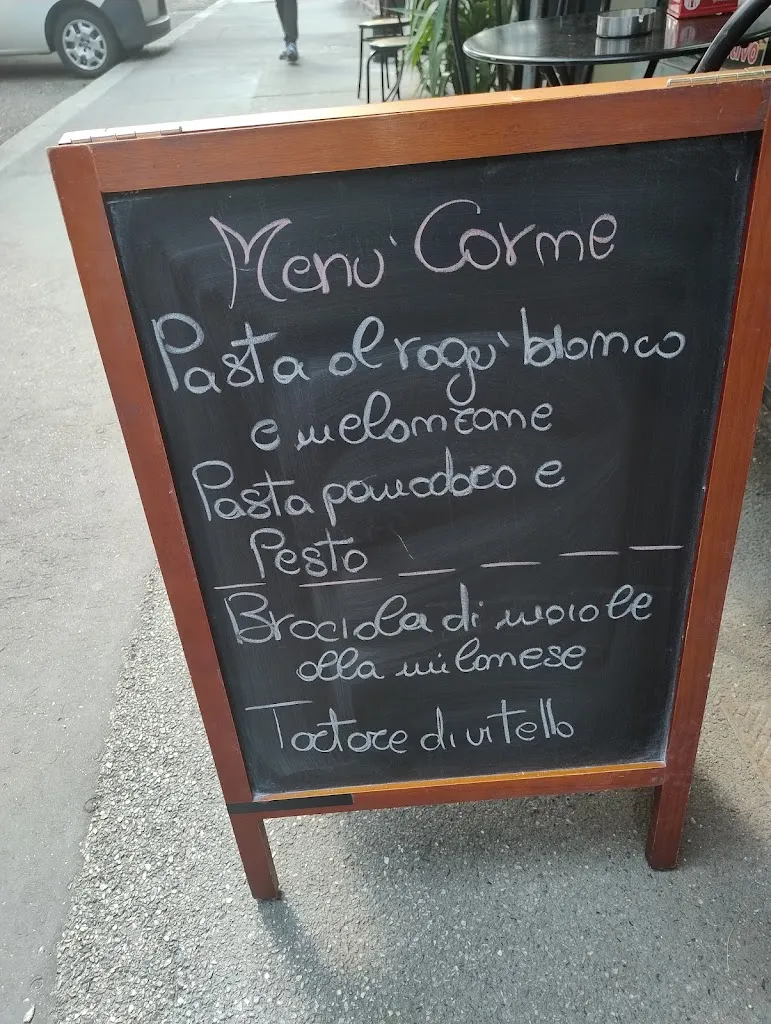 Menu' Carne
Pasta al ragu' bianco
e melanzane
Pasta pomodoro e
Pesto
Braciola di maiale
alla milanese
Tartare di vitello